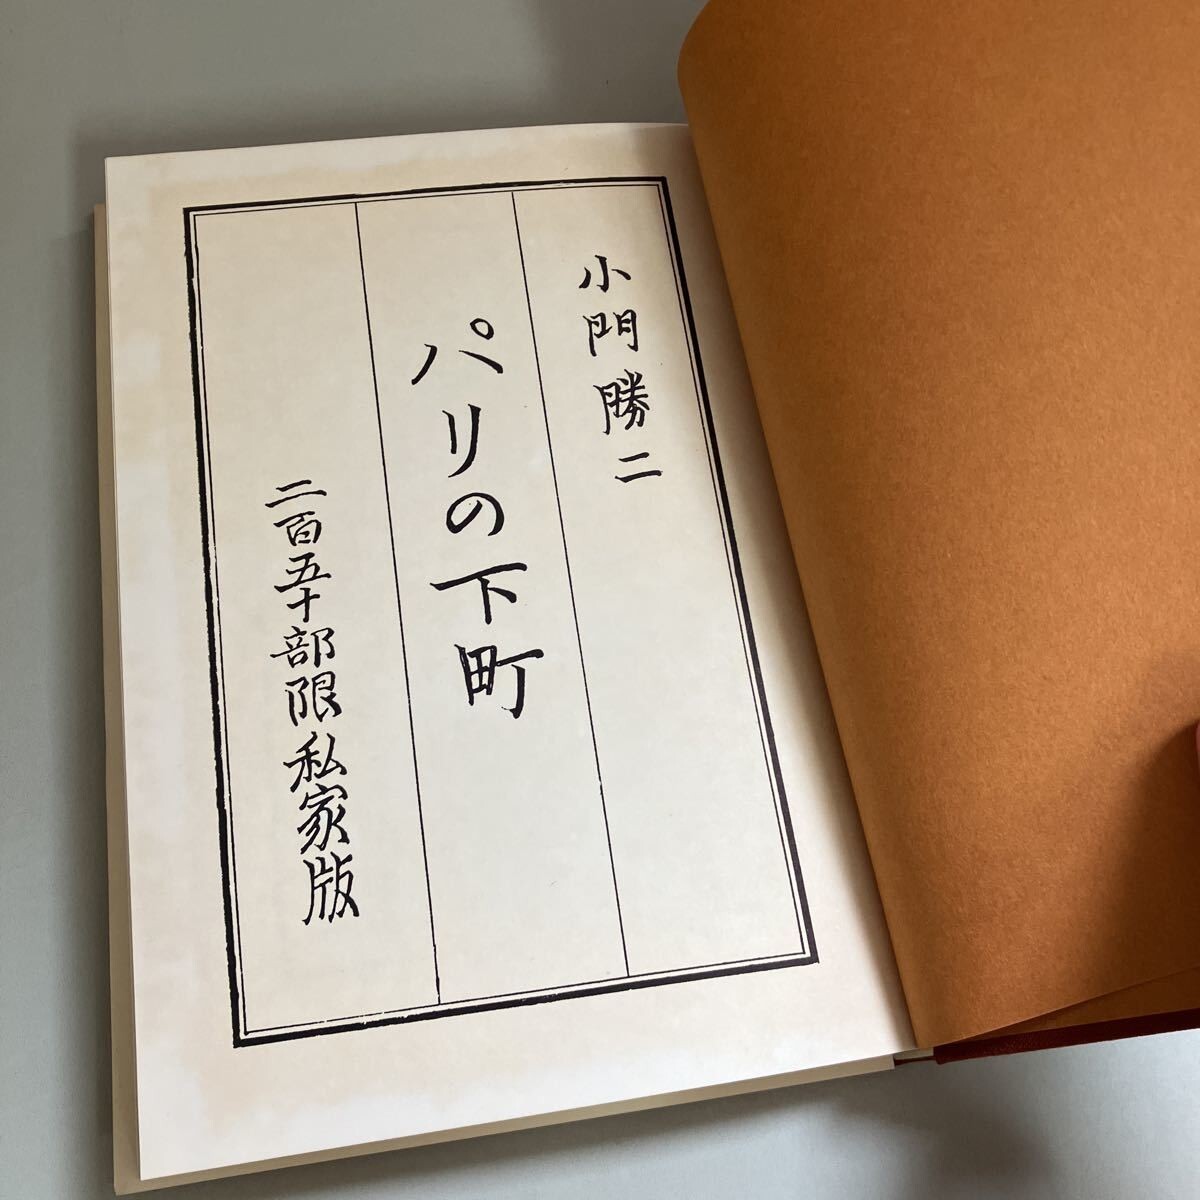 小門勝二
パリの下町
二百五十部限私家版